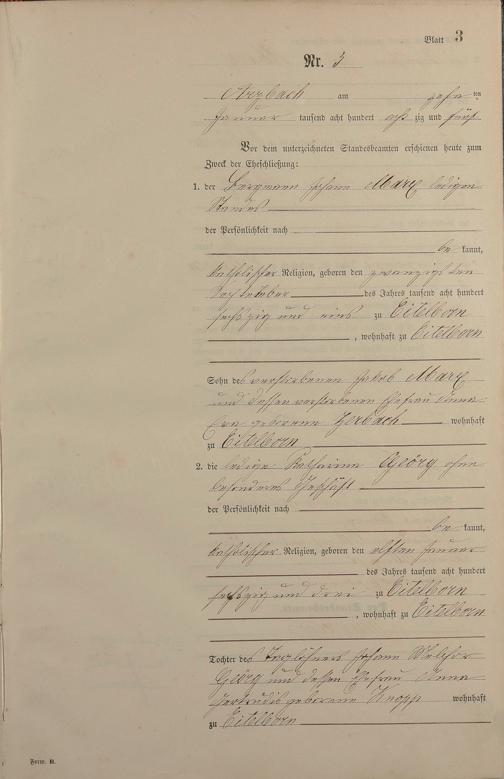 Blatt 3
Nr. 3
Arzbach am zehn ten
Januar tausend acht hundert acht zig und fünf
Vor dem unterzeichneten Standesbeamten erschienen heute zum
Zweck der Eheschließung:
1. der Bergmann Johann Marx ledigen
Standes
der Persönlichkeit nach
be kannt,
katholischer Religion, geboren den zwanzigsten
September des Jahres tausend acht hundert
sechszig und eins zu Eitelborn
, wohnhaft zu Eitelborn
Sohn des verstorbenen Jakob Marx
und dessen verstorbenen Ehefrau Anna
geborene Zerbach wohnhaft
zu Eitelborn
2. die ledige Katharina Georg ohne
besonderes Geschäft
der Persönlichkeit nach
be kannt,
katholischer Religion, geboren den elften Januar
des Jahres tausend acht hundert
sechszig und drei zu Eitelborn
, wohnhaft zu Eitelborn
Tochter des Taglöhners Johann Melchior
Georg und dessen Ehefrau Anna
Gertrudis geborene Knopp wohnhaft
zu Eitelborn
Form. B.